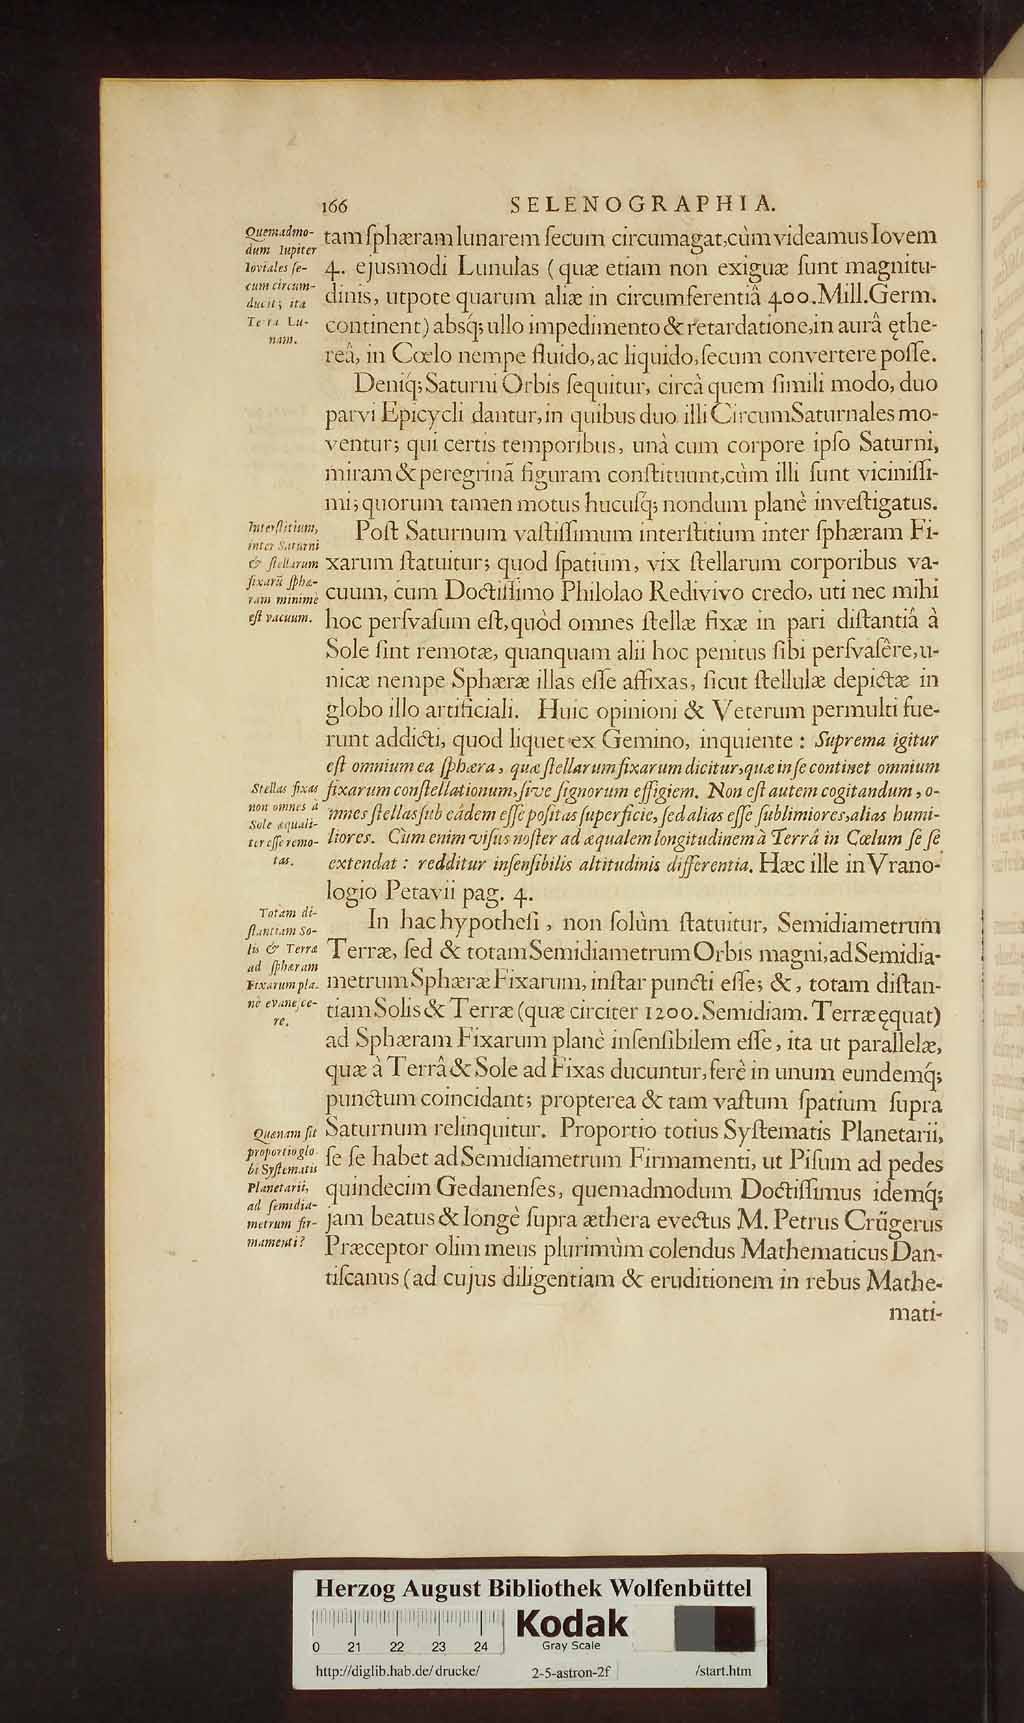 166 SELENOGRAPHIA.
Quemadmo-
dum Iupiter
Ioviales se-
cum circum-
ducit; ita
Terra Lu-
nam.
tam sphæram lunarem secum circumagat, cùm videamus Iovem
4. ejusmodi Lunulas (quæ etiam non exiguæ sunt magnitu-
dinis, utpote quarum aliæ in circumferentiâ 400. Mill. Germ.
continent) absq́; ullo impedimento & retardatione, in aurâ ęthe-
reâ, in Cœlo nempe fluido, ac liquido, secum convertere posse.
Deniq́; Saturni Orbis sequitur, circà quem simili modo, duo
parvi Epicycli dantur, in quibus duo illi CircumSaturnales mo-
ventur; qui certis temporibus, unà cum corpore ipso Saturni,
miram & peregrinã figuram constituunt, cùm illi sunt vicinissi-
mi; quorum tamen motus hucusq́; nondum planè investigatus.
Interstitium,
inter Saturni
& stellarum
fixarũ sphæ-
ram minimè
est vacuum.
Post Saturnum vastissimum interstitium inter sphæram Fi-
xarum statuitur; quod spatium, vix stellarum corporibus va-
cuum, cum Doctissimo Philolao Redivivo credo, uti nec mihi
hoc persvasum est, quòd omnes stellæ fixæ in pari distantiâ à
Sole sint remotæ, quanquam alii hoc penitus sibi persvasêre, u-
nicæ nempe Sphæræ illas esse affixas, sicut stellulæ depictæ in
globo illo artificiali. Huic opinioni & Veterum permulti fue-
runt addicti, quod liquet ex Gemino, inquiente : Suprema igitur
est omnium ea sphæra, quæ stellarum fixarum dicitur, quæ in se continet omnium
Stellas fixas
non omnes à
Sole æquali-
ter esse remo-
tas.
fixarum constellationum, sive signorum effigiem. Non est autem cogitandum, o-
mnes stellas sub eâdem esse positas superficie, sed alias esse sublimiores, alias humi-
liores. Cùm enim visus noster ad æqualem longitudinem à Terrâ in Cœlum se se
extendat : redditur insensibilis altitudinis differentia. Hæc ille in Vrano-
logio Petavii pag. 4.
Totam di-
stantiam So-
lis & Terræ
ad sphæram
Fixarum pla-
nè evanesce-
re.
In hac hypothesi, non solùm statuitur, Semidiametrum
Terræ, sed & totam Semidiametrum Orbis magni, ad Semidia-
metrum Sphæræ Fixarum, instar puncti esse; &, totam distan-
tiam Solis & Terræ (quæ circiter 1200. Semidiam. Terræ ęquat)
ad Sphæram Fixarum planè insensibilem esse, ita ut parallelæ,
quæ à Terrâ & Sole ad Fixas ducuntur, ferè in unum eundemq́;
punctum coincidant; propterea & tam vastum spatium supra
Quænam sit
proportio glo-
bi Systematis
Planetarii,
ad semidia-
metrum fir-
mamenti?
Saturnum relinquitur. Proportio totius Systematis Planetarii,
se se habet ad Semidiametrum Firmamenti, ut Pisum ad pedes
quindecim Gedanenses, quemadmodum Doctissimus idemq́;
jam beatus & longè supra æthera evectus M. Petrus Crügerus
Præceptor olim meus plurimùm colendus Mathematicus Dan-
tiscanus (ad cujus diligentiam & eruditionem in rebus Mathe-
mati-
Herzog August Bibliothek Wolfenbüttel
Kodak
Gray Scale
0 21 22 23 24
http://diglib.hab.de/drucke/ 2-5-astron-2f /start.htm